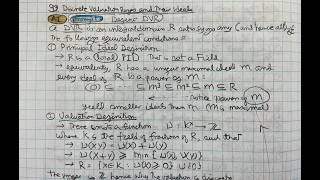 §9 Discrete Valuation Rings and Their Ideals
Discrete DVR
a DVR is an integral domain R satisfying any (and hence all) of
the following equivalent conditions:
① Principal Ideal Definition
→ R is a (local) PID → not a Field
→ equivalently, R has a unique maximal ideal m, and
every ideal of R is a power of m:
(0) ⊆ ··· ⊆ m³ ⊆ m² ⊆ m ⊆ R
notice power of m
smaller (ideals than m (m is maximal)
① Valuation Definition
→ There exists a function ν = K* → Z
where K is the field of fractions of R, such that
→ ν(xy) = ν(x) + ν(y)
→ ν(x+y) ≥ min { ν(x), ν(y) }
→ R = {x∈K : ν(x) ≥ 0}
the image is Z hence why the valuation is discrete